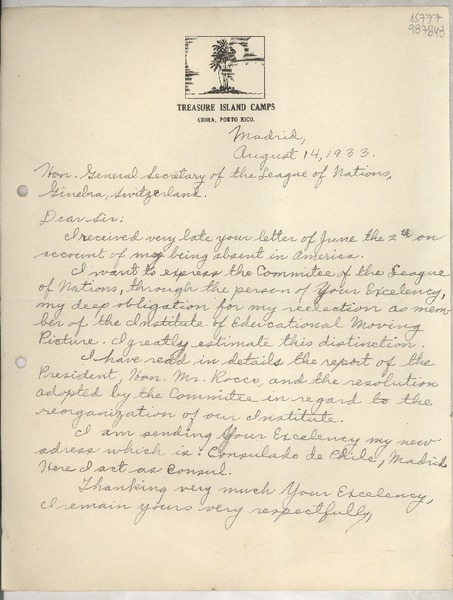 15777
987843
TREASURE ISLAND CAMPS
CIDRA, PORTO RICO.
Madrid,
August 14, 1933.
Hon. General Secretary of the League of Nations,
Ginebra, Switzerland.
Dear Sir:
I received very late your letter of June the 2th on
account of my being absent in America.
I want to express the Committee of the League
of Nations, through the person of Your Excelency,
my deep obligation for my reelection as mem-
ber of the Institute of Educational Moving
Picture. I greatly estimate this distinction.
I have read in details the report of the
President, Hon. Mr. Rocco, and the resolution
adopted by the Committee in regard to the
reorganization of our Institute.
I am sending Your Excelency my new
adress which is: Consulado de Chile, Madrid.
Here I act as Consul.
Thanking very much Your Excelency,
I remain yours very respectfully,